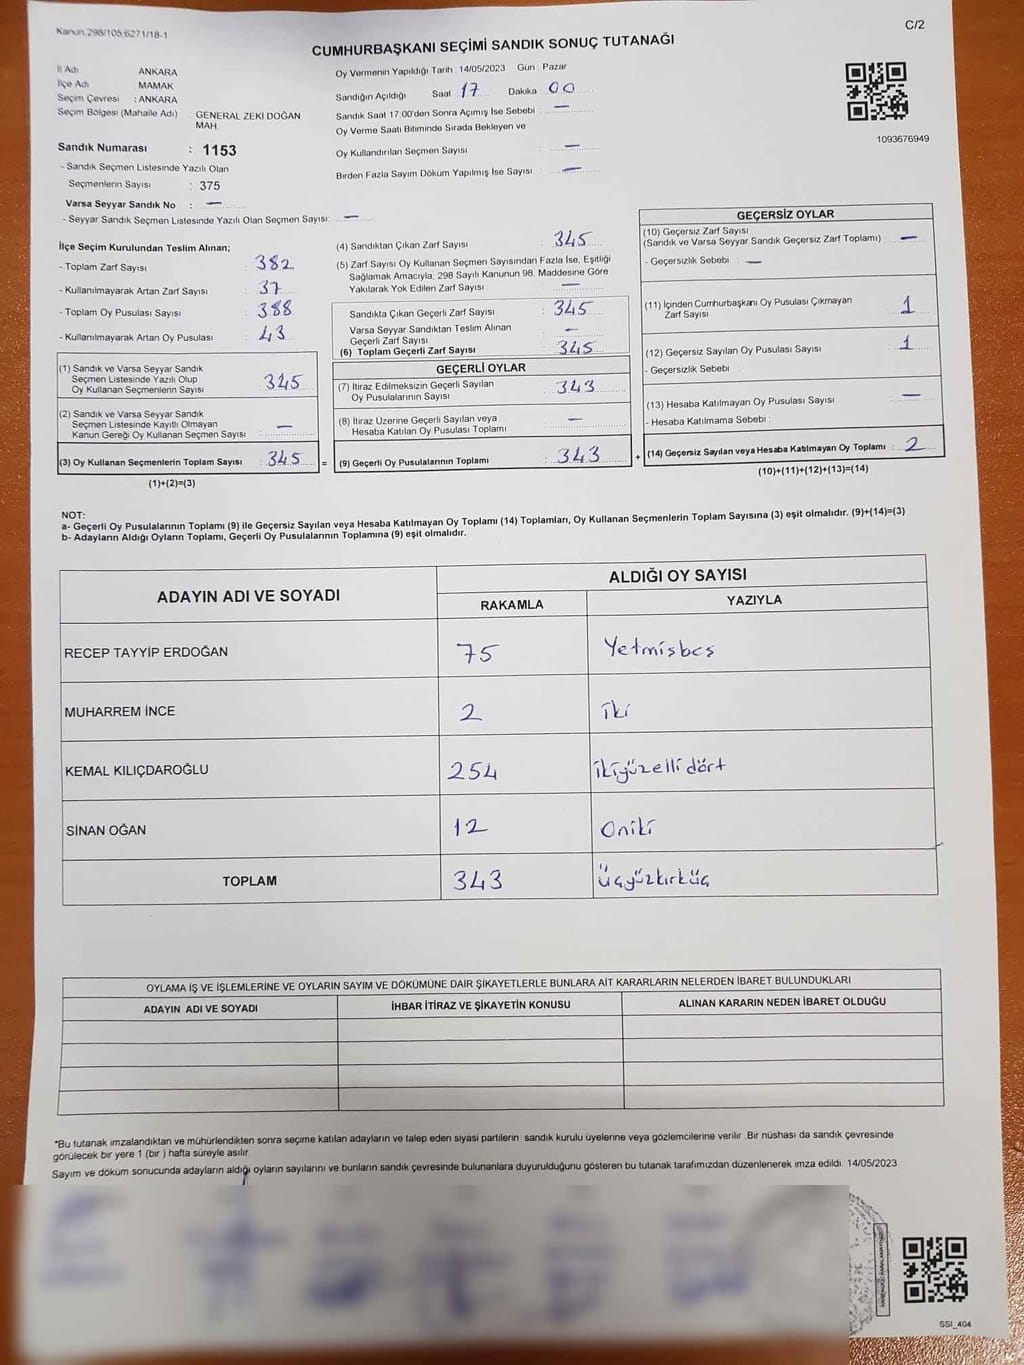 Kanun,298/105;6271/18-1
C/2
CUMHURBAŞKANI SEÇİMİ SANDIK SONUÇ TUTANAĞI
İl Adı ANKARA
İlçe Adı MAMAK
Seçim Çevresi : ANKARA
Seçim Bölgesi (Mahalle Adı) : GENERAL ZEKİ DOĞAN
MAH.
Sandık Numarası : 1153
- Sandık Seçmen Listesinde Yazılı Olan
Seçmenlerin Sayısı : 375
Varsa Seyyar Sandık No : —
- Seyyar Sandık Seçmen Listesinde Yazılı Olan Seçmen Sayısı: —
Oy Vermenin Yapıldığı Tarih : 14/05/2023 Gün : Pazar
Sandığın Açıldığı Saat : 17 Dakika 00
Sandık Saat 17:00'den Sonra Açımış İse Sebebi : —
Oy Verme Saati Bitiminde Sırada Bekleyen ve
Oy Kullandırılan Seçmen Sayısı : —
Birden Fazla Sayım Döküm Yapılmış İse Sayısı : —
1093676949
İlçe Seçim Kurulundan Teslim Alınan;
- Toplam Zarf Sayısı : 382
- Kullanılmayarak Artan Zarf Sayısı : 37
- Toplam Oy Pusulası Sayısı : 388
- Kullanılmayarak Artan Oy Pusulası : 43
(1) Sandık ve Varsa Seyyar Sandık
Seçmen Listesinde Yazılı Olup
Oy Kullanan Seçmenlerin Sayısı : 345
(2) Sandık ve Varsa Seyyar Sandık
Seçmen Listesinde Kayıtlı Olmayan
Kanun Gereği Oy Kullanan Seçmen Sayısı : —
(3) Oy Kullanan Seçmenlerin Toplam Sayısı : 345 =
(1)+(2)=(3)
(4) Sandıktan Çıkan Zarf Sayısı : 345
(5) Zarf Sayısı Oy Kullanan Seçmen Sayısından Fazla İse, Eşitliği
Sağlamak Amacıyla; 298 Sayılı Kanunun 98. Maddesine Göre
Yakılarak Yok Edilen Zarf Sayısı : —
Sandıkta Çıkan Geçerli Zarf Sayısı : 345
Varsa Seyyar Sandıktan Teslim Alınan
Geçerli Zarf Sayısı : —
(6) Toplam Geçerli Zarf Sayısı : 345
GEÇERLİ OYLAR
(7) İtiraz Edilmeksizin Geçerli Sayılan
Oy Pusulalarının Sayısı : 343
(8) İtiraz Üzerine Geçerli Sayılan veya
Hesaba Katılan Oy Pusulası Toplamı : —
(9) Geçerli Oy Pusulalarının Toplamı : 343 +
GEÇERSİZ OYLAR
(10) Geçersiz Zarf Sayısı
(Sandık ve Varsa Seyyar Sandık Geçersiz Zarf Toplamı) : —
- Geçersizlik Sebebi : —
(11) İçinden Cumhurbaşkanı Oy Pusulası Çıkmayan
Zarf Sayısı : 1
(12) Geçersiz Sayılan Oy Pusulası Sayısı : 1
- Geçersizlik Sebebi :
(13) Hesaba Katılmayan Oy Pusulası Sayısı : —
- Hesaba Katılmama Sebebi :
(14) Geçersiz Sayılan veya Hesaba Katılmayan Oy Toplamı : 2
(10)+(11)+(12)+(13)=(14)
NOT:
a- Geçerli Oy Pusulalarının Toplamı (9) ile Geçersiz Sayılan veya Hesaba Katılmayan Oy Toplamı (14) Toplamları, Oy Kullanan Seçmenlerin Toplam Sayısına (3) eşit olmalıdır. (9)+(14)=(3)
b- Adayların Aldığı Oyların Toplamı, Geçerli Oy Pusulalarının Toplamına (9) eşit olmalıdır.
ADAYIN ADI VE SOYADI ALDIĞI OY SAYISI
RAKAMLA YAZIYLA
RECEP TAYYİP ERDOĞAN 75 Yetmişbeş
MUHARREM İNCE 2 iki
KEMAL KILIÇDAROĞLU 254 ikiyüzellidört
SİNAN OĞAN 12 Oniki
TOPLAM 343 üçyüzkırküç
OYLAMA İŞ VE İŞLEMLERİNE VE OYLARIN SAYIM VE DÖKÜMÜNE DAİR ŞİKAYETLERLE BUNLARA AİT KARARLARIN NELERDEN İBARET BULUNDUKLARI
ADAYIN ADI VE SOYADI İHBAR İTİRAZ VE ŞİKAYETİN KONUSU ALINAN KARARIN NEDEN İBARET OLDUĞU
*Bu tutanak imzalandıktan ve mühürlendikten sonra seçime katılan adayların ve talep eden siyasi partilerin sandık kurulu üyelerine veya gözlemcilerine verilir. Bir nüshası da sandık çevresinde
görülecek bir yere 1 (bir ) hafta süreyle asılır
Sayım ve döküm sonucunda adayların aldığı oyların sayılarını ve bunların sandık çevresinde bulunanlara duyurulduğunu gösteren bu tutanak tarafımızdan düzenlenerek imza edildi. 14/05/2023
SSİ_404